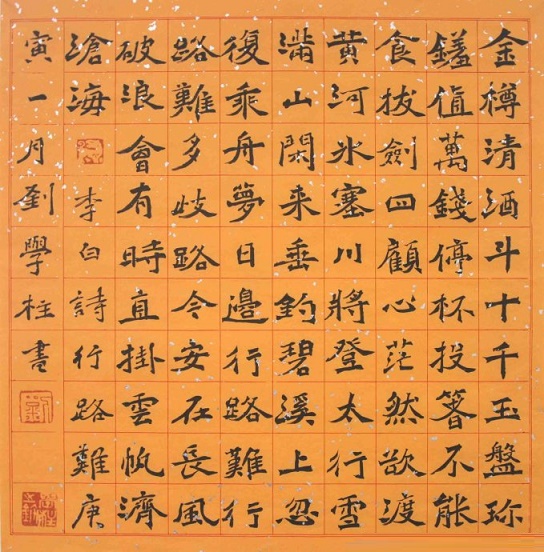 金樽清酒斗叶千玉盤珎
饈值萬錢停杯投箸不能
食拔劍四顧心茫然欲渡
黃河冰塞川將登太行雪
滿山閑來垂釣碧溪上忽
復乘舟夢日邊行路難行
路難多歧路今安在長風
破浪會有時直掛雲帆濟
滄海李白詩行路難庚
寅一月劉學柱書